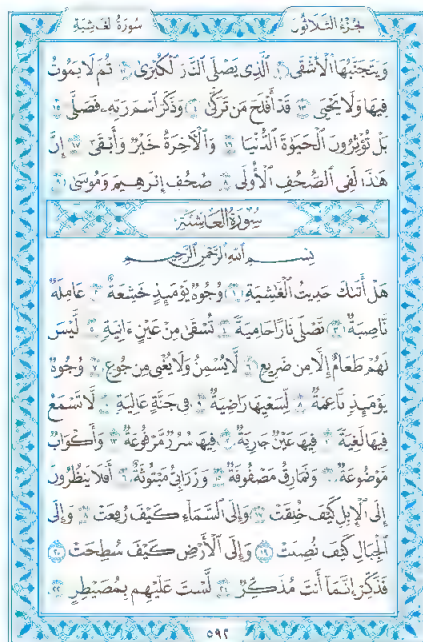 سُورَةُ الغَاشِيَةِ
الجُزْءُ الثَّلَاثُونَ
وَيَتَجَنَّبُهَا ٱلْأَشْقَى ١١ ٱلَّذِى يَصْلَى ٱلنَّارَ ٱلْكُبْرَىٰ ١٢ ثُمَّ لَا يَمُوتُ
فِيهَا وَلَا يَحْيَىٰ ١٣ قَدْ أَفْلَحَ مَن تَزَكَّىٰ ١٤ وَذَكَرَ ٱسْمَ رَبِّهِۦ فَصَلَّىٰ ١٥
بَلْ تُؤْثِرُونَ ٱلْحَيَوٰةَ ٱلدُّنْيَا ١٦ وَٱلْـَٔاخِرَةُ خَيْرٌ وَأَبْقَىٰٓ ١٧ إِنَّ
هَـٰذَا لَفِى ٱلصُّحُفِ ٱلْأُولَىٰ ١٨ صُحُفِ إِبْرَٰهِيمَ وَمُوسَىٰ ١٩
سُورَةُ الغَاشِيَةِ
بِسْمِ ٱللَّهِ ٱلرَّحْمَـٰنِ ٱلرَّحِيمِ
هَلْ أَتَىٰكَ حَدِيثُ ٱلْغَـٰشِيَةِ ١ وُجُوهٌ يَوْمَئِذٍ خَـٰشِعَةٌ ٢ عَامِلَةٌ
نَّاصِبَةٌ ٣ تَصْلَىٰ نَارًا حَامِيَةً ٤ تُسْقَىٰ مِنْ عَيْنٍ ءَانِيَةٍ ٥ لَّيْسَ
لَهُمْ طَعَامٌ إِلَّا مِن ضَرِيعٍ ٦ لَّا يُسْمِنُ وَلَا يُغْنِى مِن جُوعٍ ٧ وُجُوهٌ
يَوْمَئِذٍ نَّاعِمَةٌ ٨ لِّسَعْيِهَا رَاضِيَةٌ ٩ فِى جَنَّةٍ عَالِيَةٍ ١٠ لَّا تَسْمَعُ
فِيهَا لَـٰغِيَةً ١١ فِيهَا عَيْنٌ جَارِيَةٌ ١٢ فِيهَا سُرُرٌ مَّرْفُوعَةٌ ١٣ وَأَكْوَابٌ
مَّوْضُوعَةٌ ١٤ وَنَمَارِقُ مَصْفُوفَةٌ ١٥ وَزَرَابِىُّ مَبْثُوثَةٌ ١٦ أَفَلَا يَنظُرُونَ
إِلَى ٱلْإِبِلِ كَيْفَ خُلِقَتْ ١٧ وَإِلَى ٱلسَّمَآءِ كَيْفَ رُفِعَتْ ١٨ وَإِلَى
ٱلْجِبَالِ كَيْفَ نُصِبَتْ ١٩ وَإِلَى ٱلْأَرْضِ كَيْفَ سُطِحَتْ ٢٠
فَذَكِّرْ إِنَّمَآ أَنتَ مُذَكِّرٌ ٢١ لَّسْتَ عَلَيْهِم بِمُصَيْطِرٍ ٢٢
٥٩٢